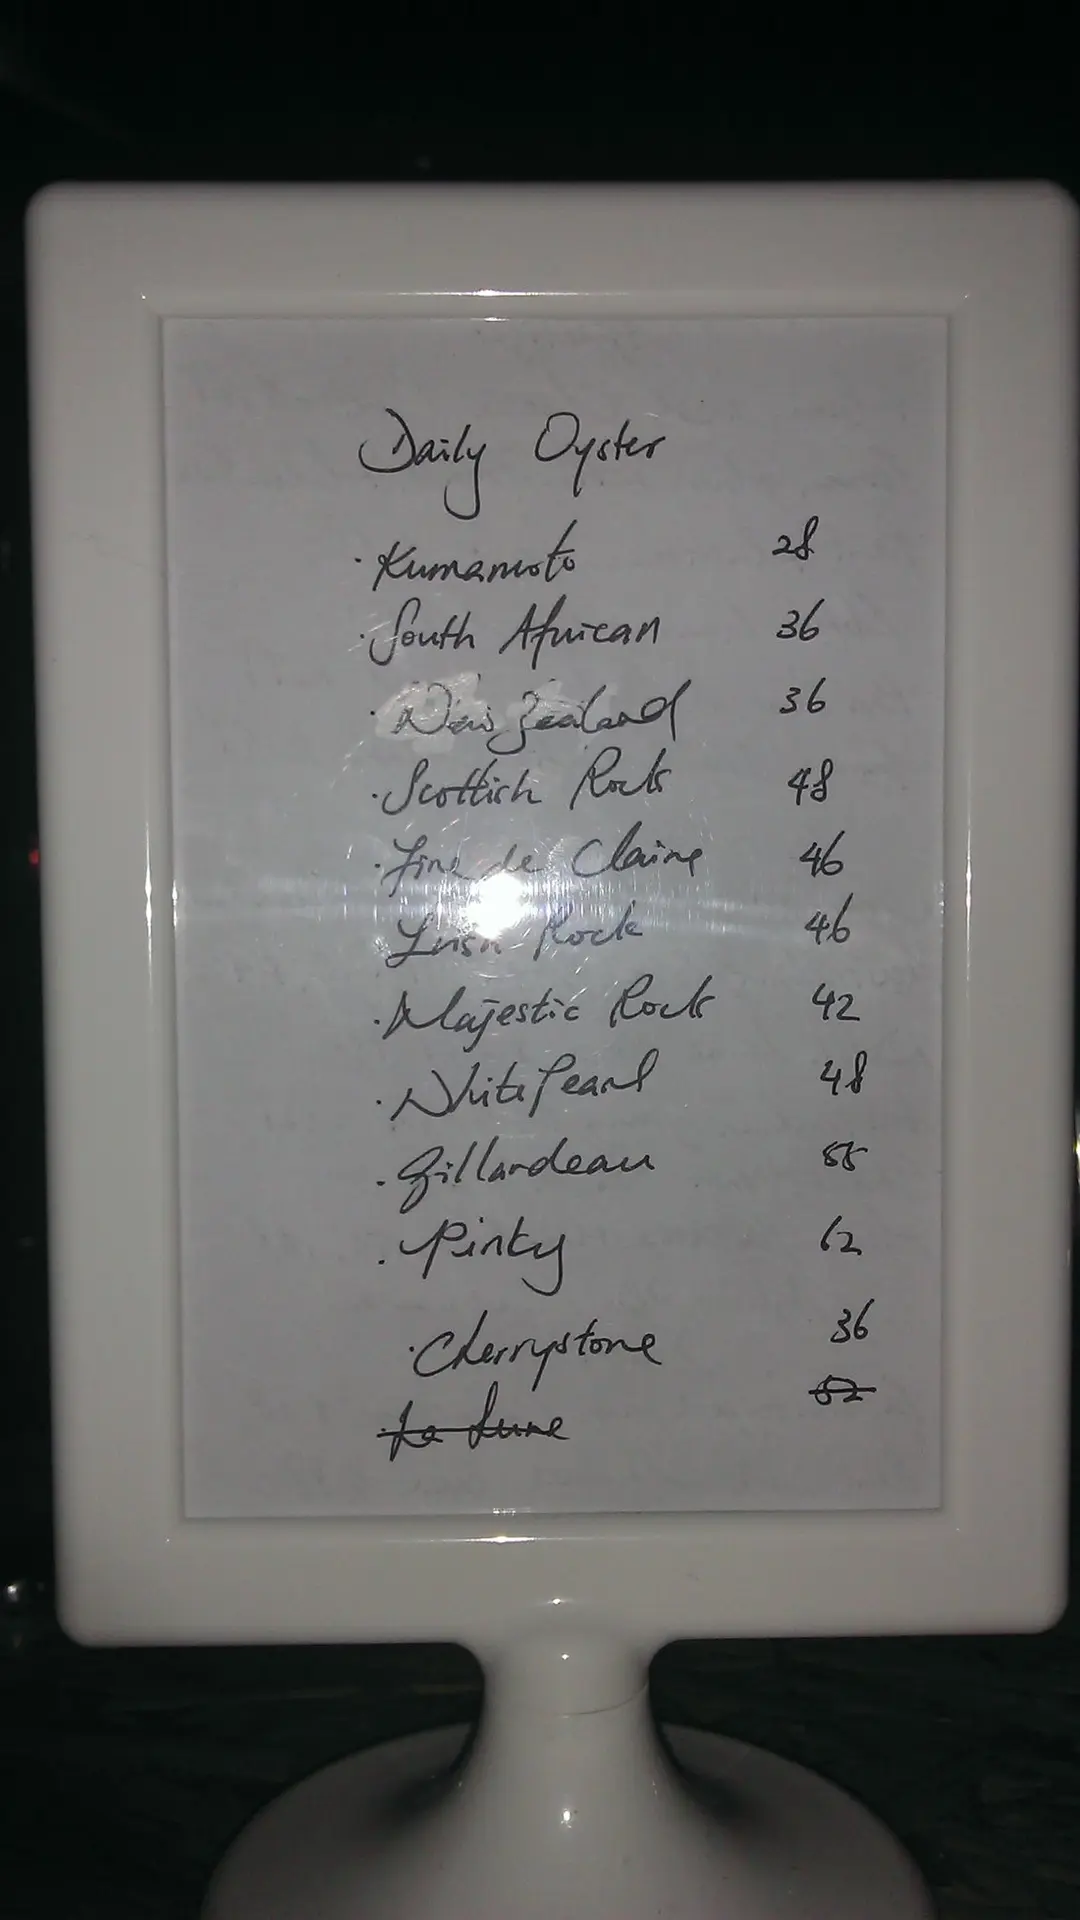 Daily Oyster
· Kumamoto 28
· South African 36
· New Zealand 36
· Scottish Rock 48
· Fine de Claire 46
Irish Rock 46
· Majestic Rock 42
· White Pearl 48
· Gillardeau 55
· Pinky 62
· Cherrystone 36
La Lune 52